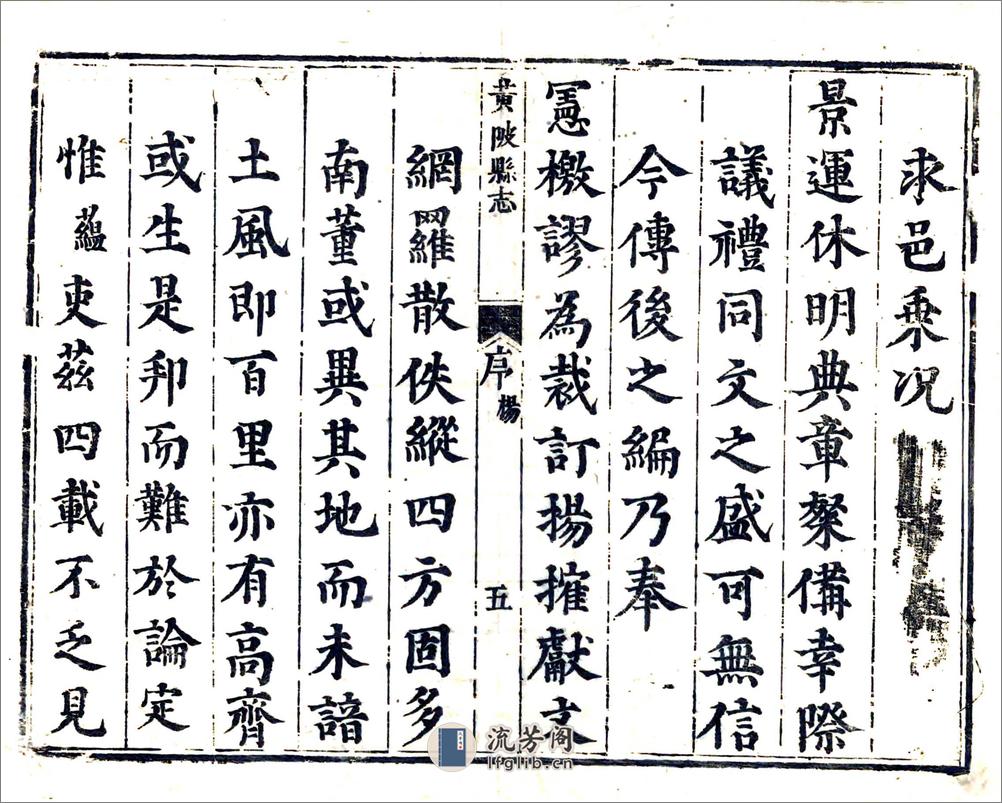 求邑乗况
景運休明典章粲備幸際
議禮同文之盛可無信
今傳後之編乃奉
憲檄謬為裁訂揚搉獻文
黃陂縣志
序 楊
五
網羅散佚縱四方固多
南董或異其地而未諳
土風即百里亦有高齊
或生是邦而難於論定
惟蘊吏茲四載不乏見
流芳阁
lfglib.cn